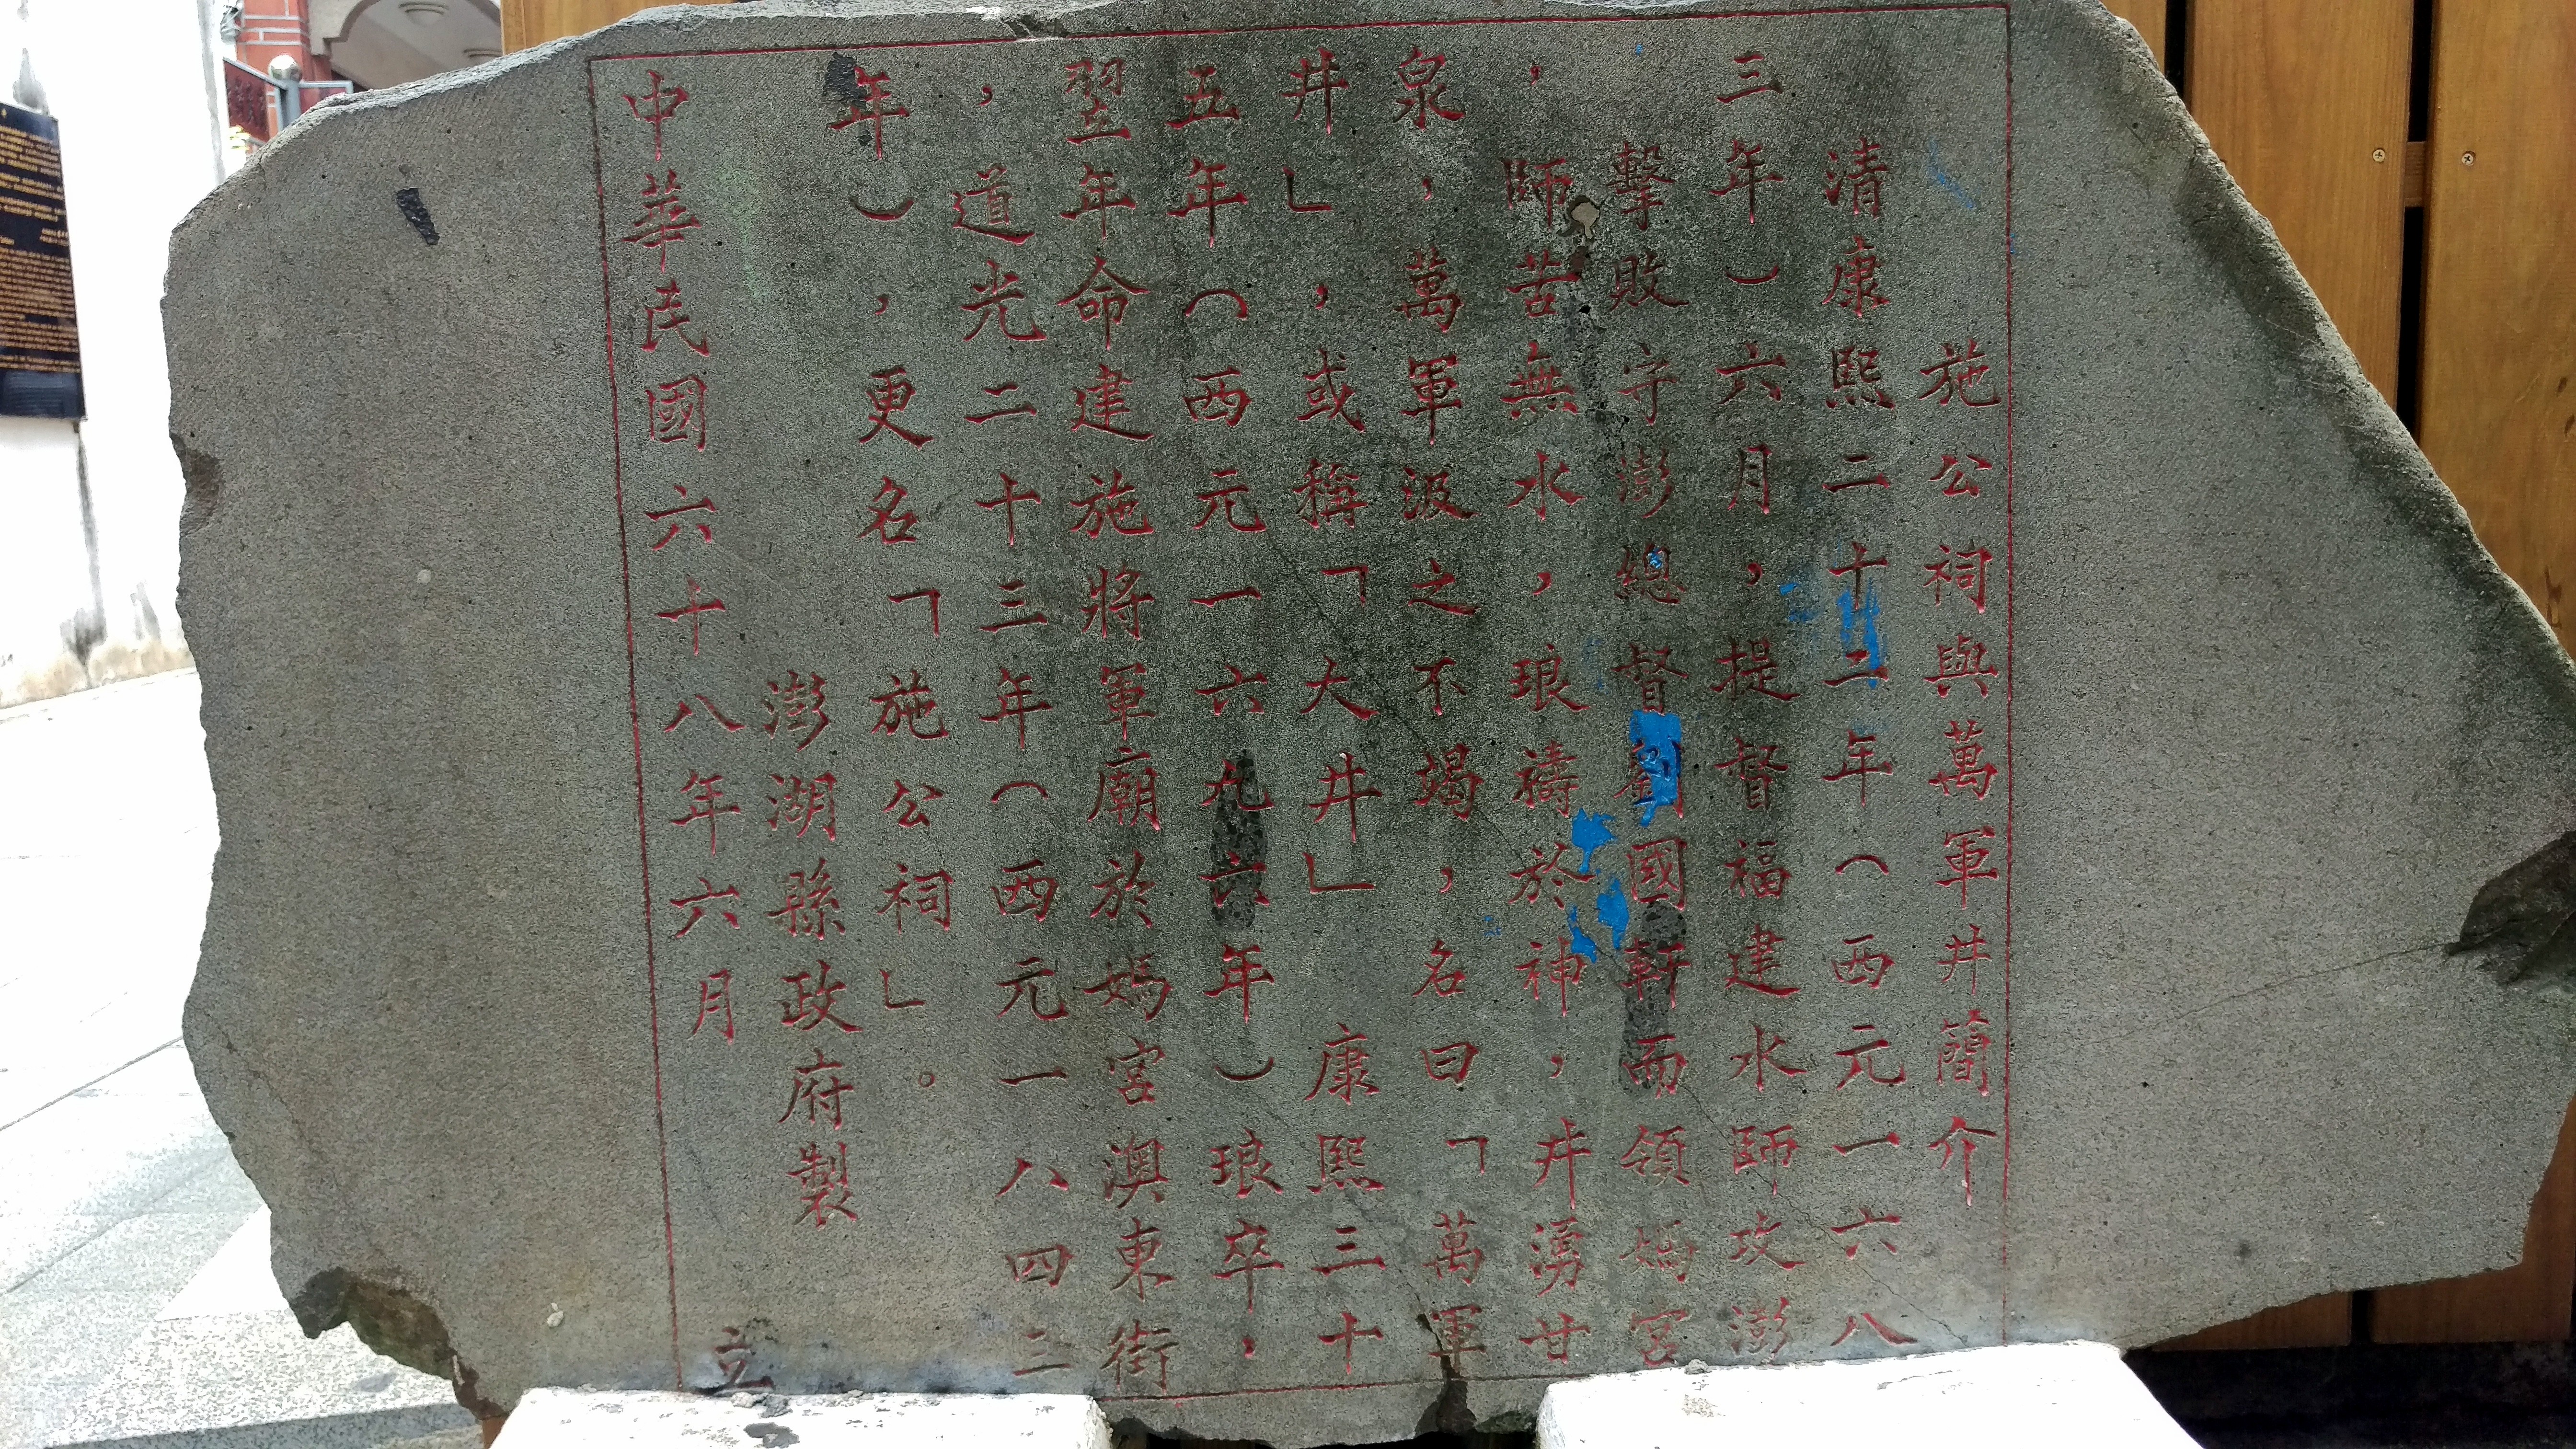 施公祠與萬軍井簡介
清康熙二十二年（西元一六八
三年）六月，提督福建水師攻澎
擊敗守澎總督劉國軒而領媽宮
，師苦無水，琅禱於神，井湧甘
泉，萬軍汲之不竭，名曰「萬軍
井」，或稱「大井」　康熙三十
五年（西元一六九六年）琅卒，
翌年命建施將軍廟於媽宮澳東街
，道光二十三年（西元一八四三
年），更名「施公祠」。
澎湖縣政府製
中華民國六十八年六月　　立